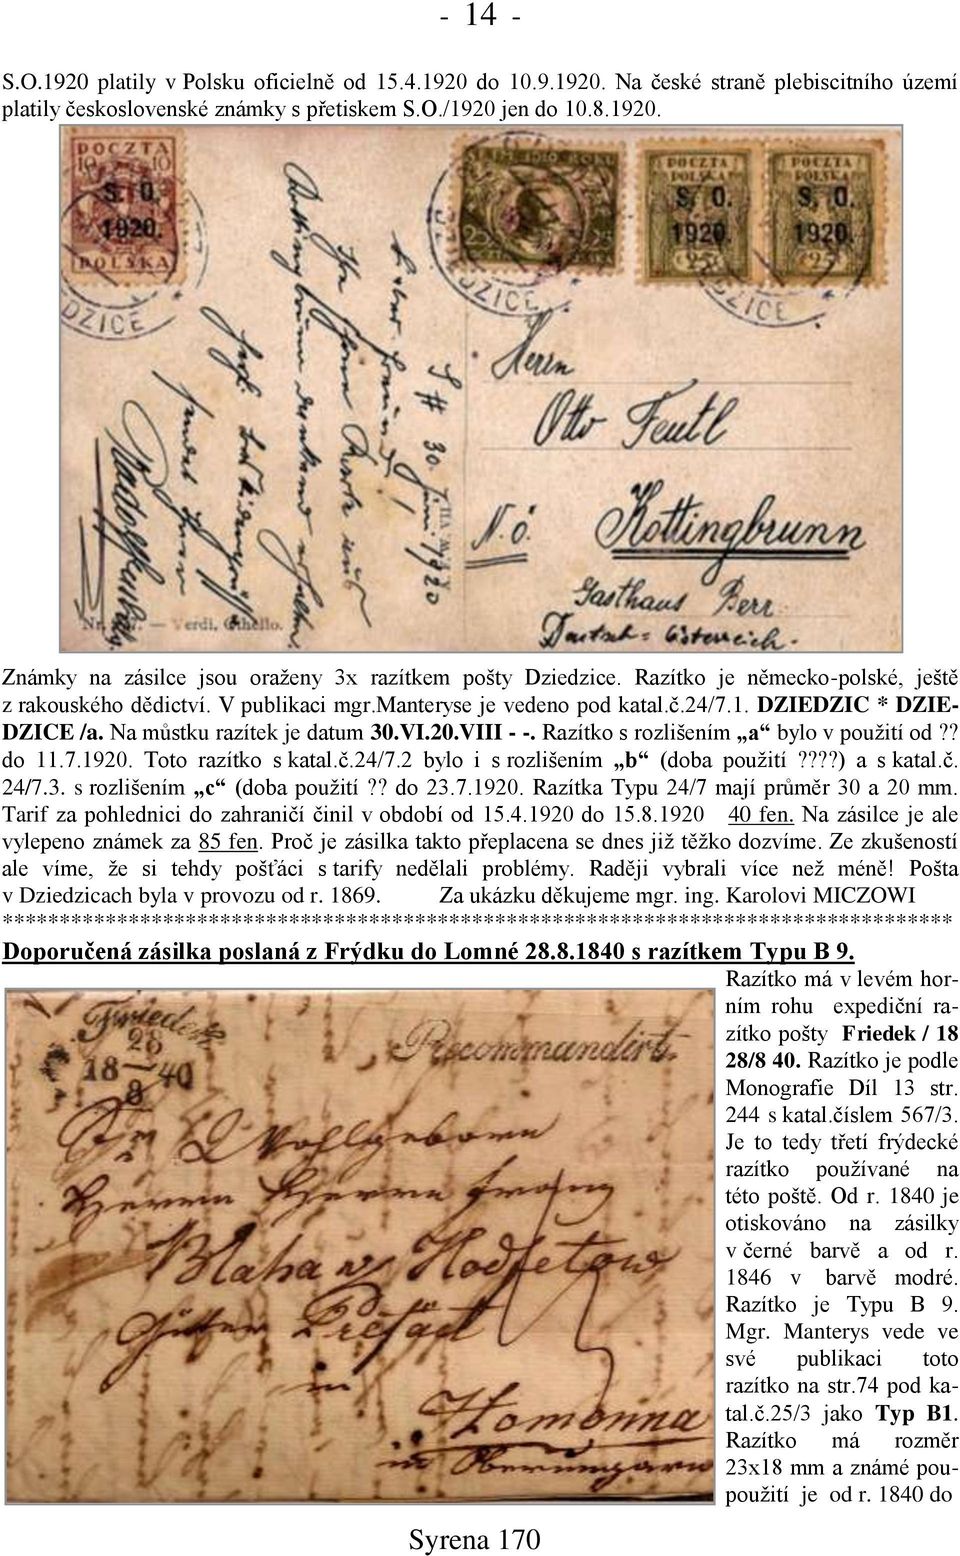 - 14 -
S.O.1920 platily v Polsku oficielně od 15.4.1920 do 10.9.1920. Na české straně plebiscitního území
platily československé známky s přetiskem S.O./1920 jen do 10.8.1920.
POCZTA
10 10
S. O.
1920.
POLSKA
25 25
POCZTA
POLSKA
S. O.
1920.
25
POCZTA
POLSKA
S. O.
1920.
25
DZICE
DZICE
DZICE
Lieber Freund!
30. Juni 1920
Herrn
Otto Feutl
N.Ö. Kottingbrunn
Gasthaus Berr
Deutsch-Österreich.
Verdi, Othello.
Známky na zásilce jsou oraženy 3x razítkem pošty Dziedzice. Razítko je německo-polské, ještě
z rakouského dědictví. V publikaci mgr.Manteryse je vedeno pod katal.č.24/7.1. DZIEDZIC * DZIE-
DZICE /a. Na můstku razítek je datum 30.VI.20.VIII - -. Razítko s rozlišením „a“ bylo v použití od ??
do 11.7.1920. Toto razítko s katal.č.24/7.2 bylo i s rozlišením „b“ (doba použití ????) a s katal.č.
24/7.3. s rozlišením „c“ (doba použití ?? do 23.7.1920. Razítka Typu 24/7 mají průměr 30 a 20 mm.
Tarif za pohlednici do zahraničí činil v období od 15.4.1920 do 15.8.1920 40 fen. Na zásilce je ale
vylepeno známek za 85 fen. Proč je zásilka takto přeplacena se dnes již těžko dozvíme. Ze zkušeností
ale víme, že si tehdy pošťáci s tarify nedělali problémy. Raději vybrali více než méně! Pošta
v Dziedzicach byla v provozu od r. 1869. Za ukázku děkujeme mgr. ing. Karolovi MICZOWI
************************************************************************************
Doporučená zásilka poslaná z Frýdku do Lomné 28.8.1840 s razítkem Typu B 9.
Friedek
28
18—40
8
Recommandirt.
Wohlgeboren
Herrn Herrn Franz
Blaha v Hodjetow
Güter Präfect
in
Homonna
in Oberungarn
Razítko má v levém hor-
ním rohu expediční ra-
zítko pošty Friedek / 18
28/8 40. Razítko je podle
Monografie Díl 13 str.
244 s katal.číslem 567/3.
Je to tedy třetí frýdecké
razítko používané na
této poště. Od r. 1840 je
otiskováno na zásilky
v černé barvě a od r.
1846 v barvě modré.
Razítko je Typu B 9.
Mgr. Manterys vede ve
své publikaci toto
razítko na str.74 pod ka-
tal.č.25/3 jako Typ B1.
Razítko má rozměr
23x18 mm a známé pou-
použití je od r. 1840 do
Syrena 170